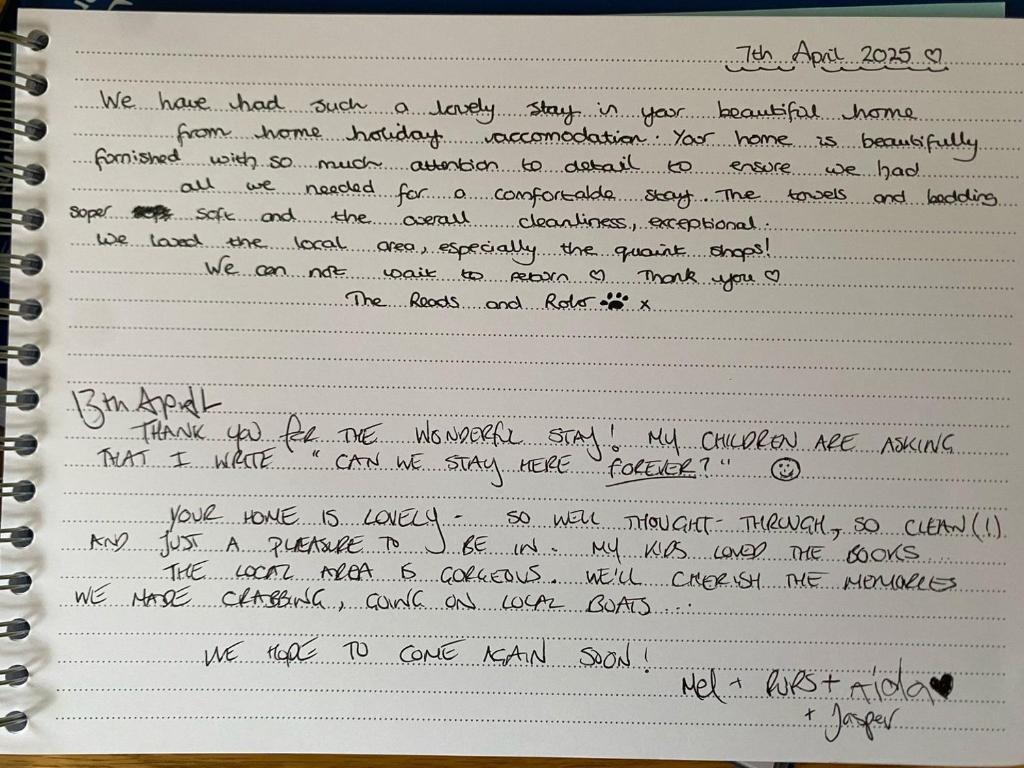 7th April 2025 ♡
We have had such a lovely stay in your beautiful home
from home holiday accomodation. Your home is beautifully
furnished with so much attention to detail to ensure we had
all we needed for a comfortable stay. The towels and bedding
super soft and the overall cleanliness, exceptional.
We loved the local area, especially the quaint shops!
We can not wait to return ♡ Thank you ♡
The Reads and Rolo 🐾 x
13th April
THANK YOU for THE WONDERFUL STAY! MY CHILDREN ARE ASKING
THAT I WRITE "CAN WE STAY HERE FOREVER?" ☺
YOUR HOME IS LOVELY - SO WELL THOUGHT-THROUGH, SO CLEAN(!)
AND JUST A PLEASURE TO BE IN. MY KIDS LOVED THE BOOKS
THE LOCAL AREA IS GORGEOUS. WE'LL CHERISH THE MEMORIES
WE MADE CRABBING, GOING ON LOCAL BOATS...
WE HOPE TO COME AGAIN SOON!
Mel + + Aida ♥
+ Jasper